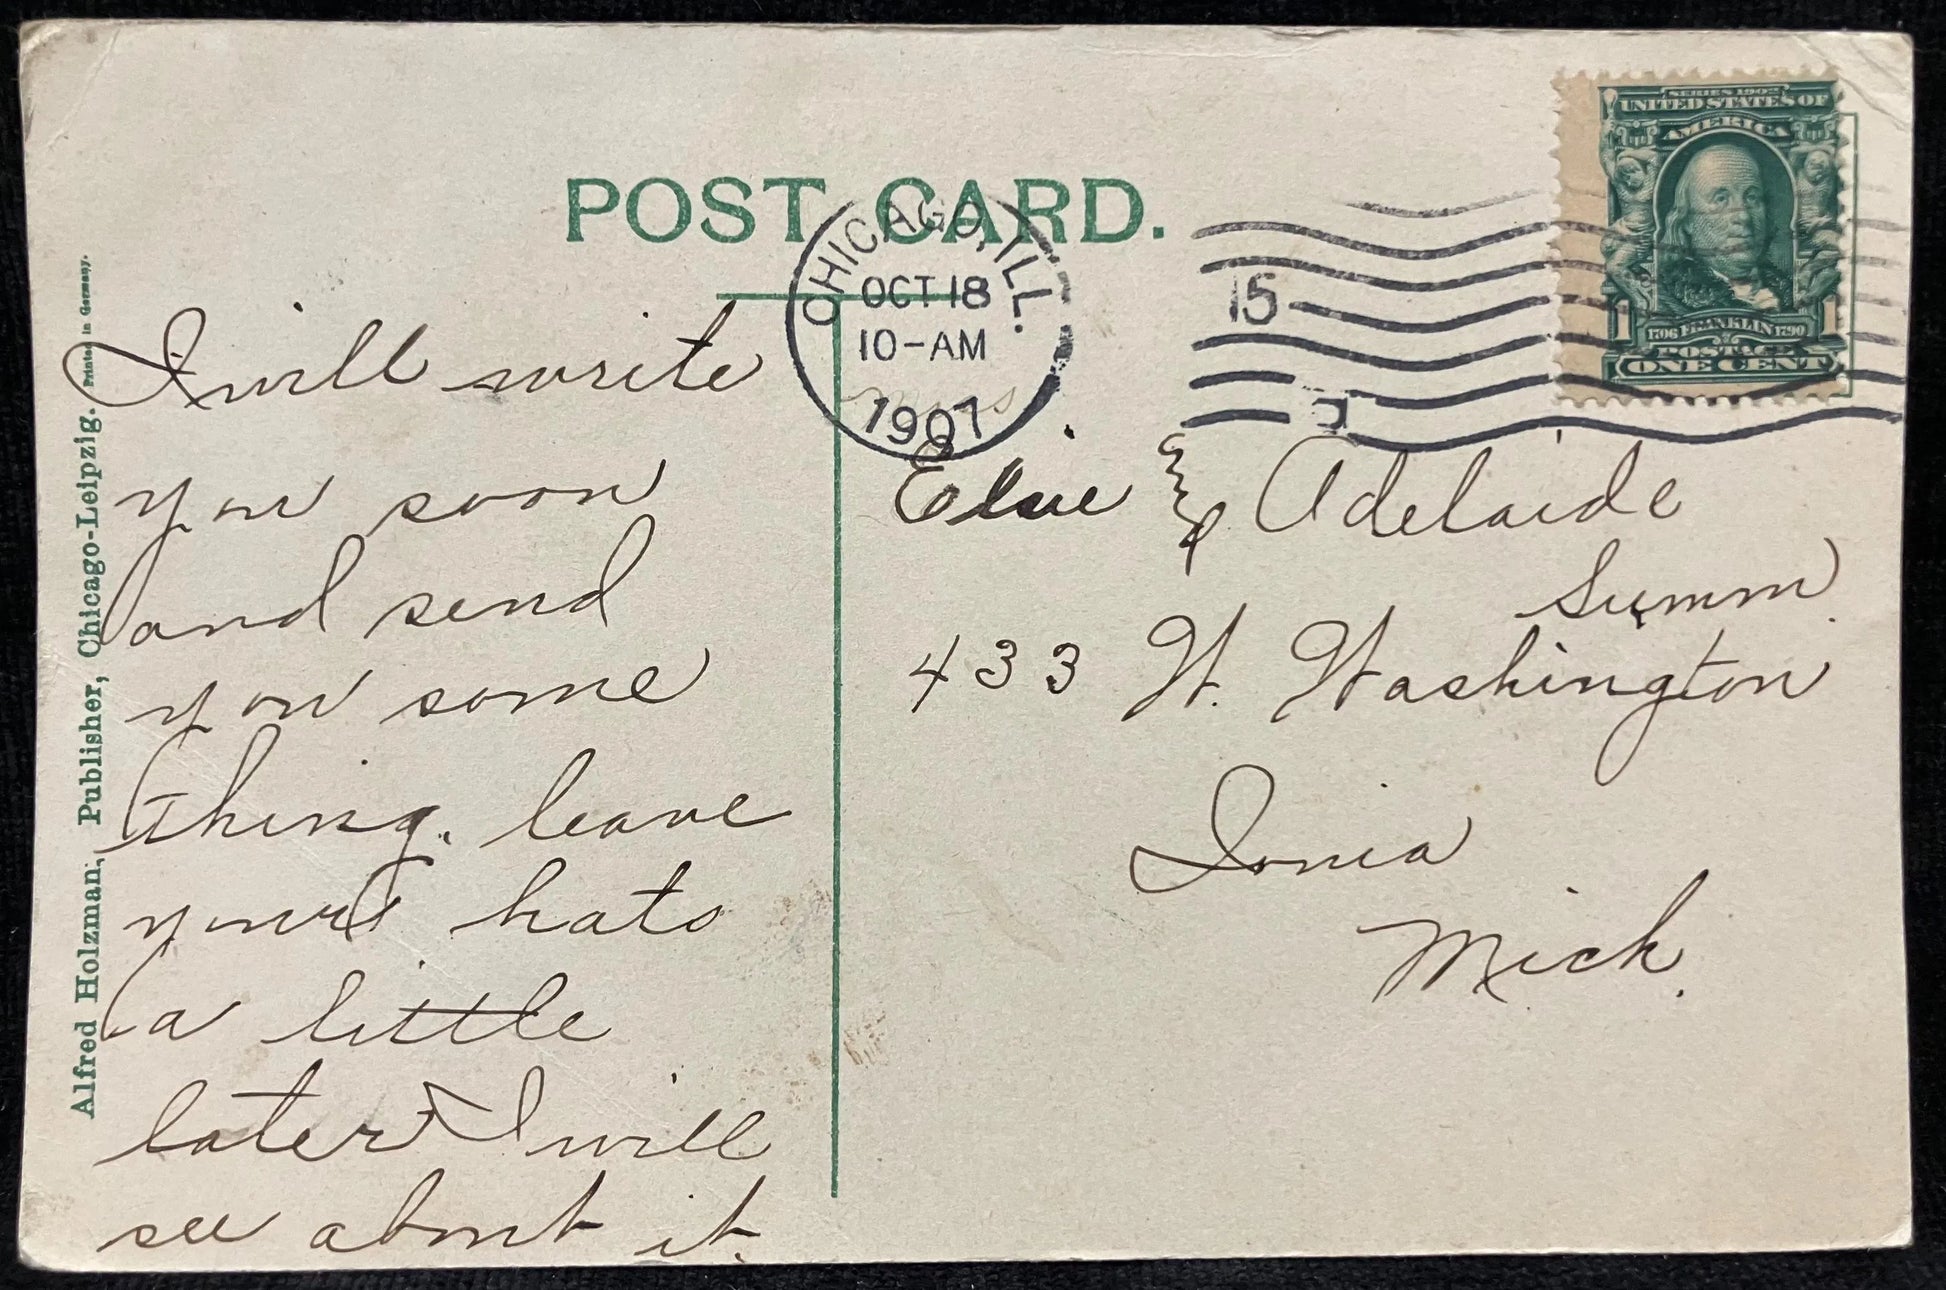 POST CARD.
CHICAGO, ILL.
OCT 18
10-AM
1907
15
SERIES 1902
UNITED STATES OF
AMERICA
1706 FRANKLIN 1790
POSTAGE
1 1
ONE CENT
Alfred Holzman, Publisher, Chicago-Leipzig. Printed in Germany.
I will write
you soon
and send
you some
thing. leave
your hats
a little
later I will
see about it.
Elsie & Adelaide
Summ
433 W. Washington
Ionia
Mich.